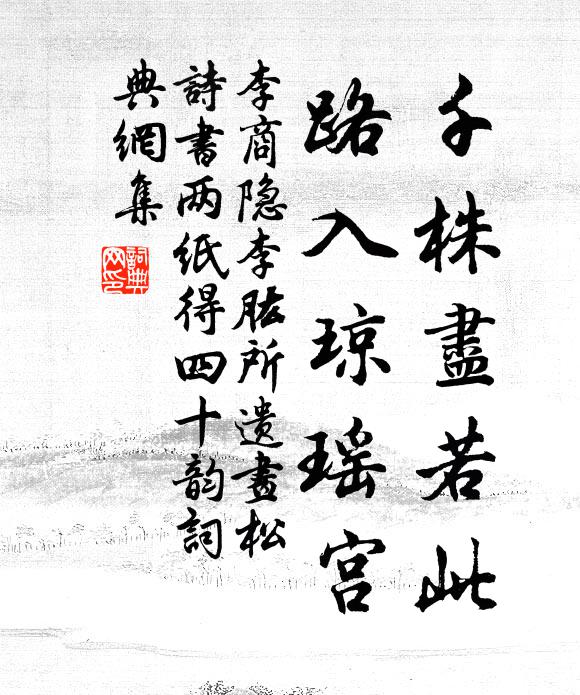 千株盡若此
路入琼瑶宫
李商隐李肱所遺畫松
詩書两紙得四十韵詞
典網集
詞典網印